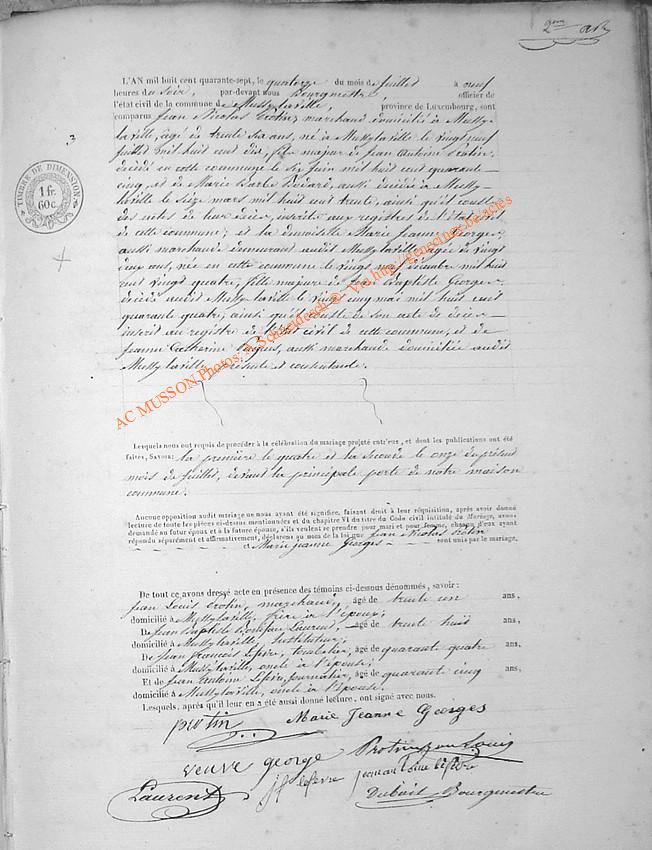 2eme
3
TIMBRE DE DIMENSION
1 fr.
60c
L'AN mil huit cent quarante-sept, le quatorze du mois de juillet à neuf
heures du soir, par-devant nous Bourgmestre officier de
l'état civil de la commune de Mussy-la-ville, province de Luxembourg, sont
comparus Jean Nicolas Protin, marchand domicilié à Mussy-
la-ville, âgé de trente six ans, né à Mussy la ville le vingt neuf
juillet mil huit cent dix, fils majeur de Jean Antoine Protin
décédé en cette commune le six juin mil huit cent quarante-
cinq, et de Marie Barbe Bodard, aussi décédée à Mussy-
la ville le seize mars mil huit cent trente, ainsi qu'il conste
des actes de leur décès, inscrits aux registres de l'état civil
de cette commune; et la demoiselle Marie Jeanne Georges
aussi marchande demeurant audit Mussy la ville âgée de vingt
deux ans, née en cette commune le vingt neuf décembre mil huit
cent vingt quatre, fille majeure de Jean Baptiste Georges
décédé audit Mussy la ville le vingt cinq mai mil huit cent
quarante quatre, ainsi qu'il conste de son acte de décès
inscrit au registre de l'état civil de cette commune, et de
Jeanne Catherine aussi marchande domiciliée audit
Mussy la ville présente et consentante.
AC MUSSON Photos: A Schneidesch © - Via http://gencoines.be/actes
Lesquels nous ont requis de procéder à la célébration du mariage projeté entr'eux, et dont les publications ont été
faites, SAVOIR: la première le quatre et la seconde le onze du présent
mois de juillet, devant la principale porte de notre maison
commune.
Aucune opposition audit mariage ne nous ayant été signifiée, faisant droit à leur réquisition, après avoir donné
lecture de toute les pièces ci-dessus mentionnées et du chapitre VI du titre du Code civil intitulé du Mariage, avons
demandé au futur époux et à la future épouse, s'ils veulent se prendre pour mari et pour femme, chacun d'eux ayant
répondu séparément et affirmativement, déclarons au nom de la loi que Jean Nicolas Protin
et Marie Jeanne Georges sont unis par le mariage.
De tout ce avons dressé acte en présence des témoins ci-dessous dénommés, savoir:
Jean Louis Protin, marchand, âgé de trente un ans,
domicilié à Mussy la ville, frère à l'époux;
De Jean Baptiste Laurent, âgé de trente huit ans,
domicilié à Mussy la ville, instituteur;
De Jean François Lefèvre, tonnelier, âgé de quarante quatre ans,
domicilié à Mussy la ville, oncle à l'épouse;
Et de Jean Antoine Lefèvre, journalier, âgé de quarante cinq ans,
domicilié à Mussy la ville, oncle à l'épouse.
Lesquels, après qu'il leur en a été aussi donné lecture, ont signé avec nous.
protin Marie Jeanne Georges
veuve george Protin jean Louis
Laurent jf lefevre jean antoine lefevre
Dubois Bourgmestre